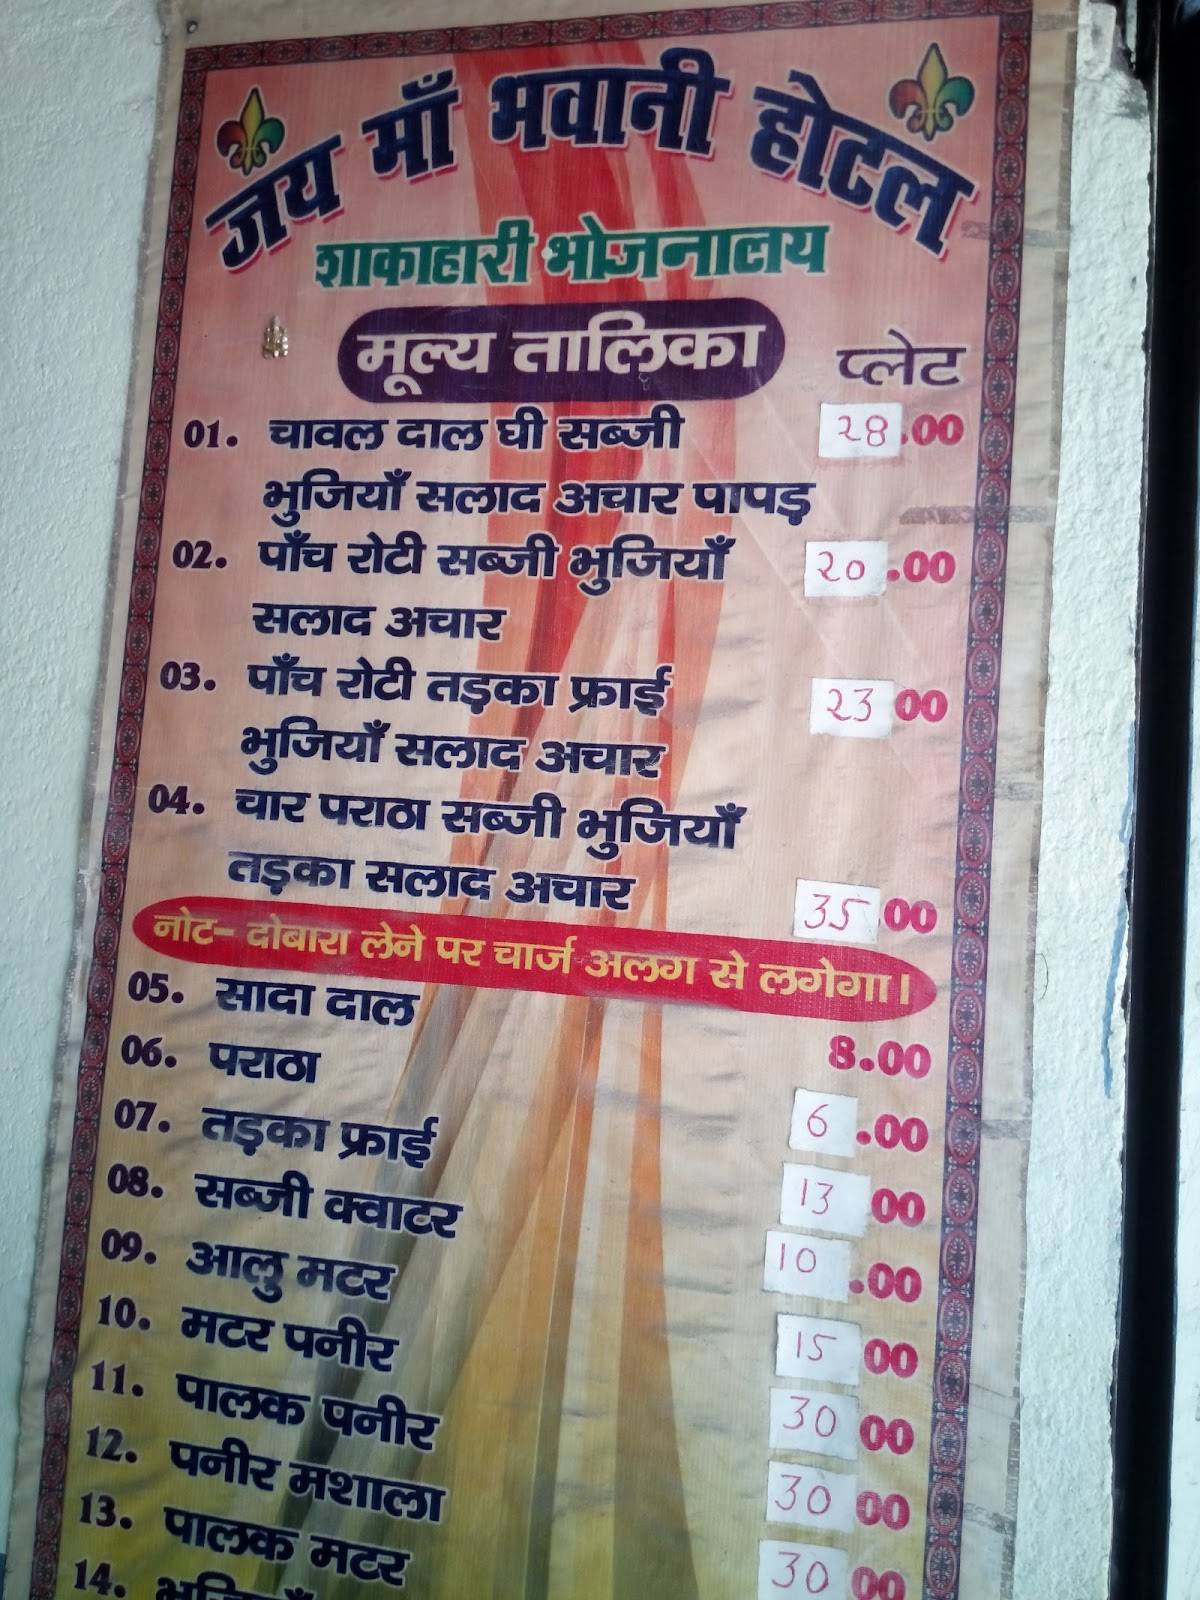 जय माँ भवानी होटल
शाकाहारी भोजनालय
मूल्य तालिका प्लेट
01. चावल दाल घी सब्जी 28.00
भुजियाँ सलाद अचार पापड़
02. पाँच रोटी सब्जी भुजियाँ 20.00
सलाद अचार
03. पाँच रोटी तड़का फ्राई 23 00
भुजियाँ सलाद अचार
04. चार पराठा सब्जी भुजियाँ
तड़का सलाद अचार 35 00
नोट- दोबारा लेने पर चार्ज अलग से लगेगा।
05. सादा दाल 8.00
06. पराठा 6.00
07. तड़का फ्राई 13 00
08. सब्जी क्वाटर 10.00
09. आलु मटर 15 00
10. मटर पनीर 30 00
11. पालक पनीर 30 00
12. पनीर मशाला 30 00
13. पालक मटर
14.